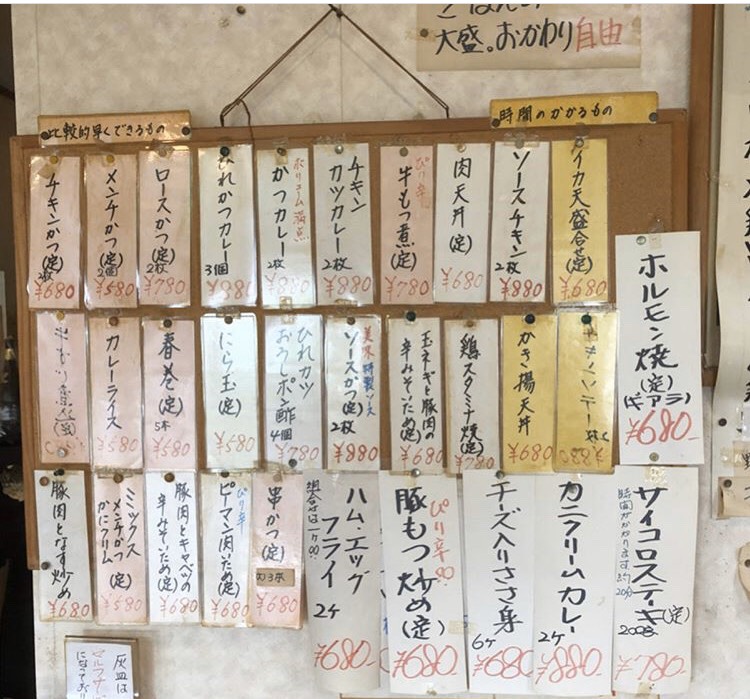 大盛。おかわり自由
比較的早くできるもの
時間のかかるもの
チキンかつ(定)
2枚
¥680
メンチかつ(定)
2個
¥680
ロースかつ(定)
2枚
¥780
ひれかつカレー
3個
¥880
ボリューム満点
かつカレー
2枚
¥880
チキン
カツカレー
2枚
¥880
ぴり辛
牛もつ煮(定)
¥780
肉天丼(定)
¥680
ソースチキン
2枚
¥880
イカ天盛合せ(定)
¥680
ホルモン焼
(定)
(ギアラ)
¥680-
カレーライス
¥580
春巻(定)
5本
¥580
にら玉(定)
¥580
ひれカツ
おろしポン酢
4個
¥780
美味特製ソース
ソースかつ(定)
2枚
¥880
玉ネギと豚肉の
辛みそいため(定)
¥680
鶏スタミナ焼(定)
¥780
かき揚天丼
¥680
豚肉となす炒め
¥680
ミックス
メンチかつ
かにクリーム
(定)
¥580
豚肉とキャベツの
辛みそいため(定)
¥680
ぴり辛
ピーマン肉いため(定)
¥680
串かつ(定)
¥680
ハム、エッグ
フライ
2ヶ
¥680-
ぴり辛
豚もつ炒め(定)
¥680
チーズ入りささ身
6ヶ
¥680
カニクリームカレー
2ヶ
¥880
サイコロステーキ(定)
200g
時間がかかります
20分
灰皿は